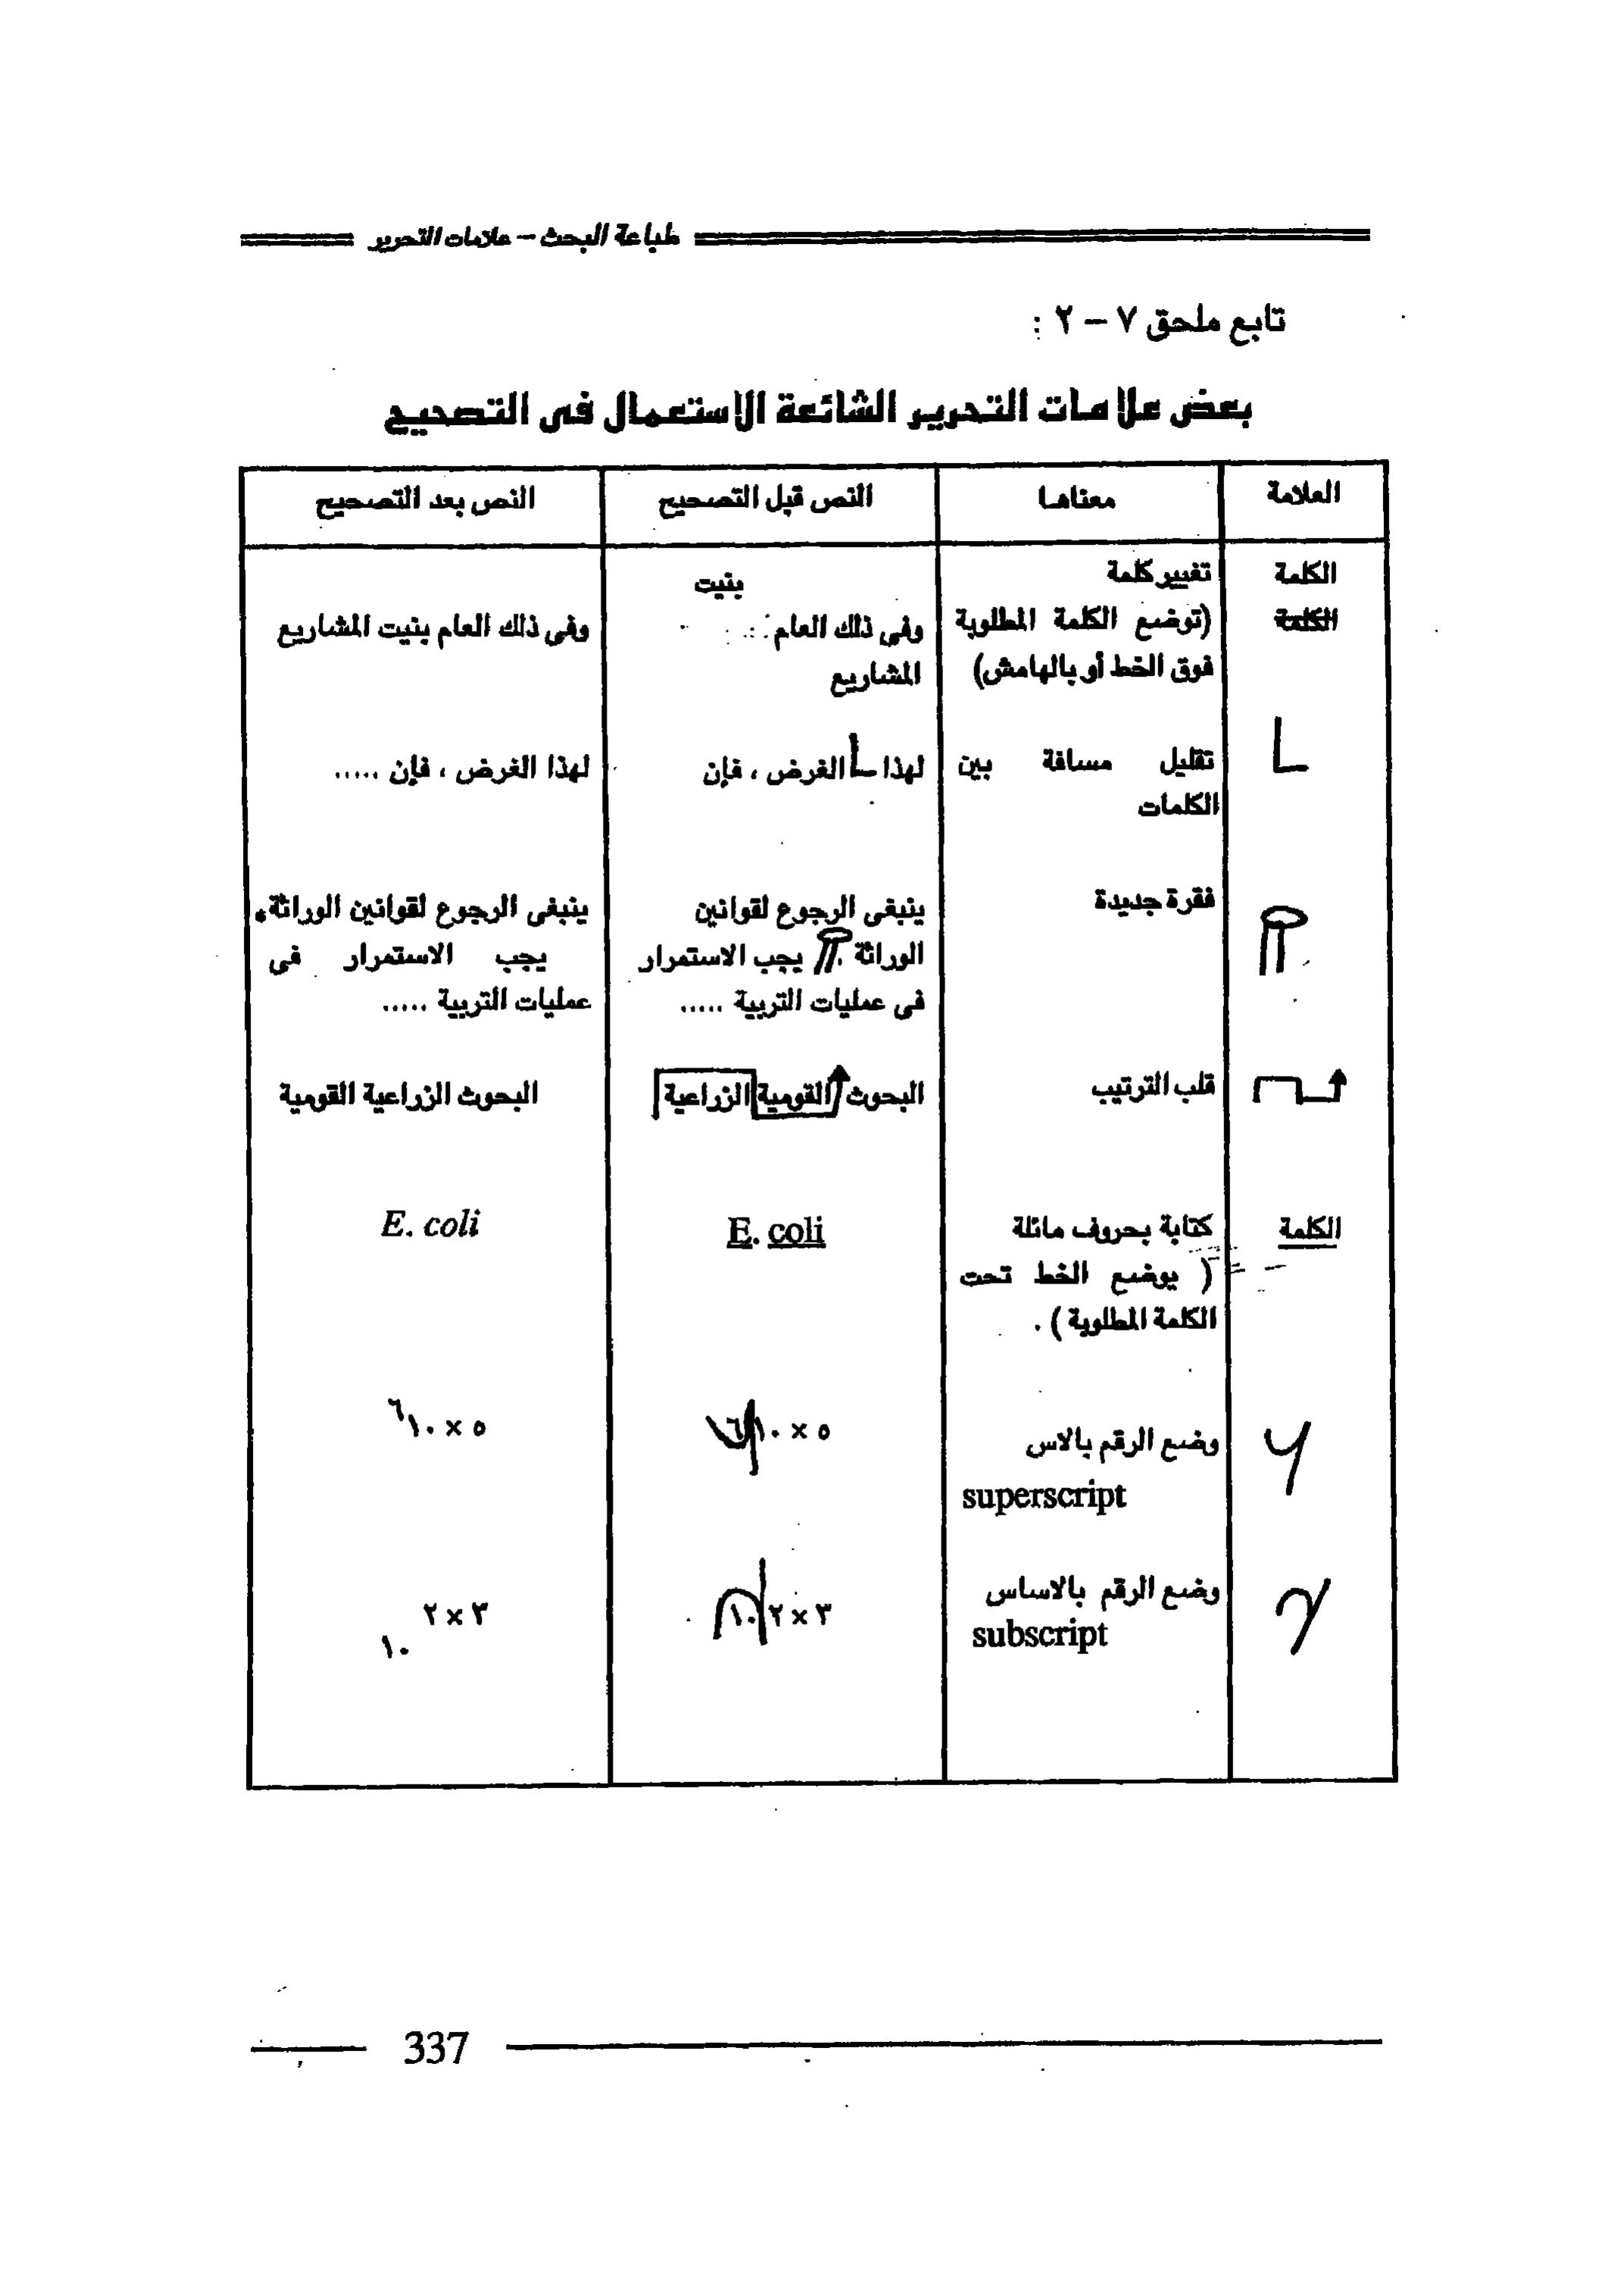 طباعة البحث – علامات التحرير
تابع ملحق ٧ – ٢ :
بعض علامات التحرير الشائعة الاستعمال فى التصحيح
العلامة
معناها
النص قبل التصحيح
النص بعد التصحيح
الكلمة
الكلمة
تغيير كلمة
(توضع الكلمة المطلوبة
فوق الخط أو بالهامش)
بنيت
وفى ذلك العام
المشاريع
وفى ذلك العام بنيت المشاريع
تقليل مسافة بين
الكلمات
لهذا الغرض ، فإن
لهذا الغرض ، فإن .....
فقرة جديدة
ينبغى الرجوع لقوانين
الوراثة . يجب الاستمرار
فى عمليات التربية .....
ينبغى الرجوع لقوانين الوراثة.
يجب الاستمرار فى
عمليات التربية .....
قلب الترتيب
البحوث القومية الزراعية
البحوث الزراعية القومية
الكلمة
كتابة بحروف مائلة
( يوضع الخط تحت
الكلمة المطلوبة ) .
E. coli
E. coli
وضع الرقم بالاس
superscript
٥ × ١٠ ٦
٥ × ١٠⁶
وضع الرقم بالاساس
subscript
٣ × ٢ ١٠
٣ × ٢
١٠
337